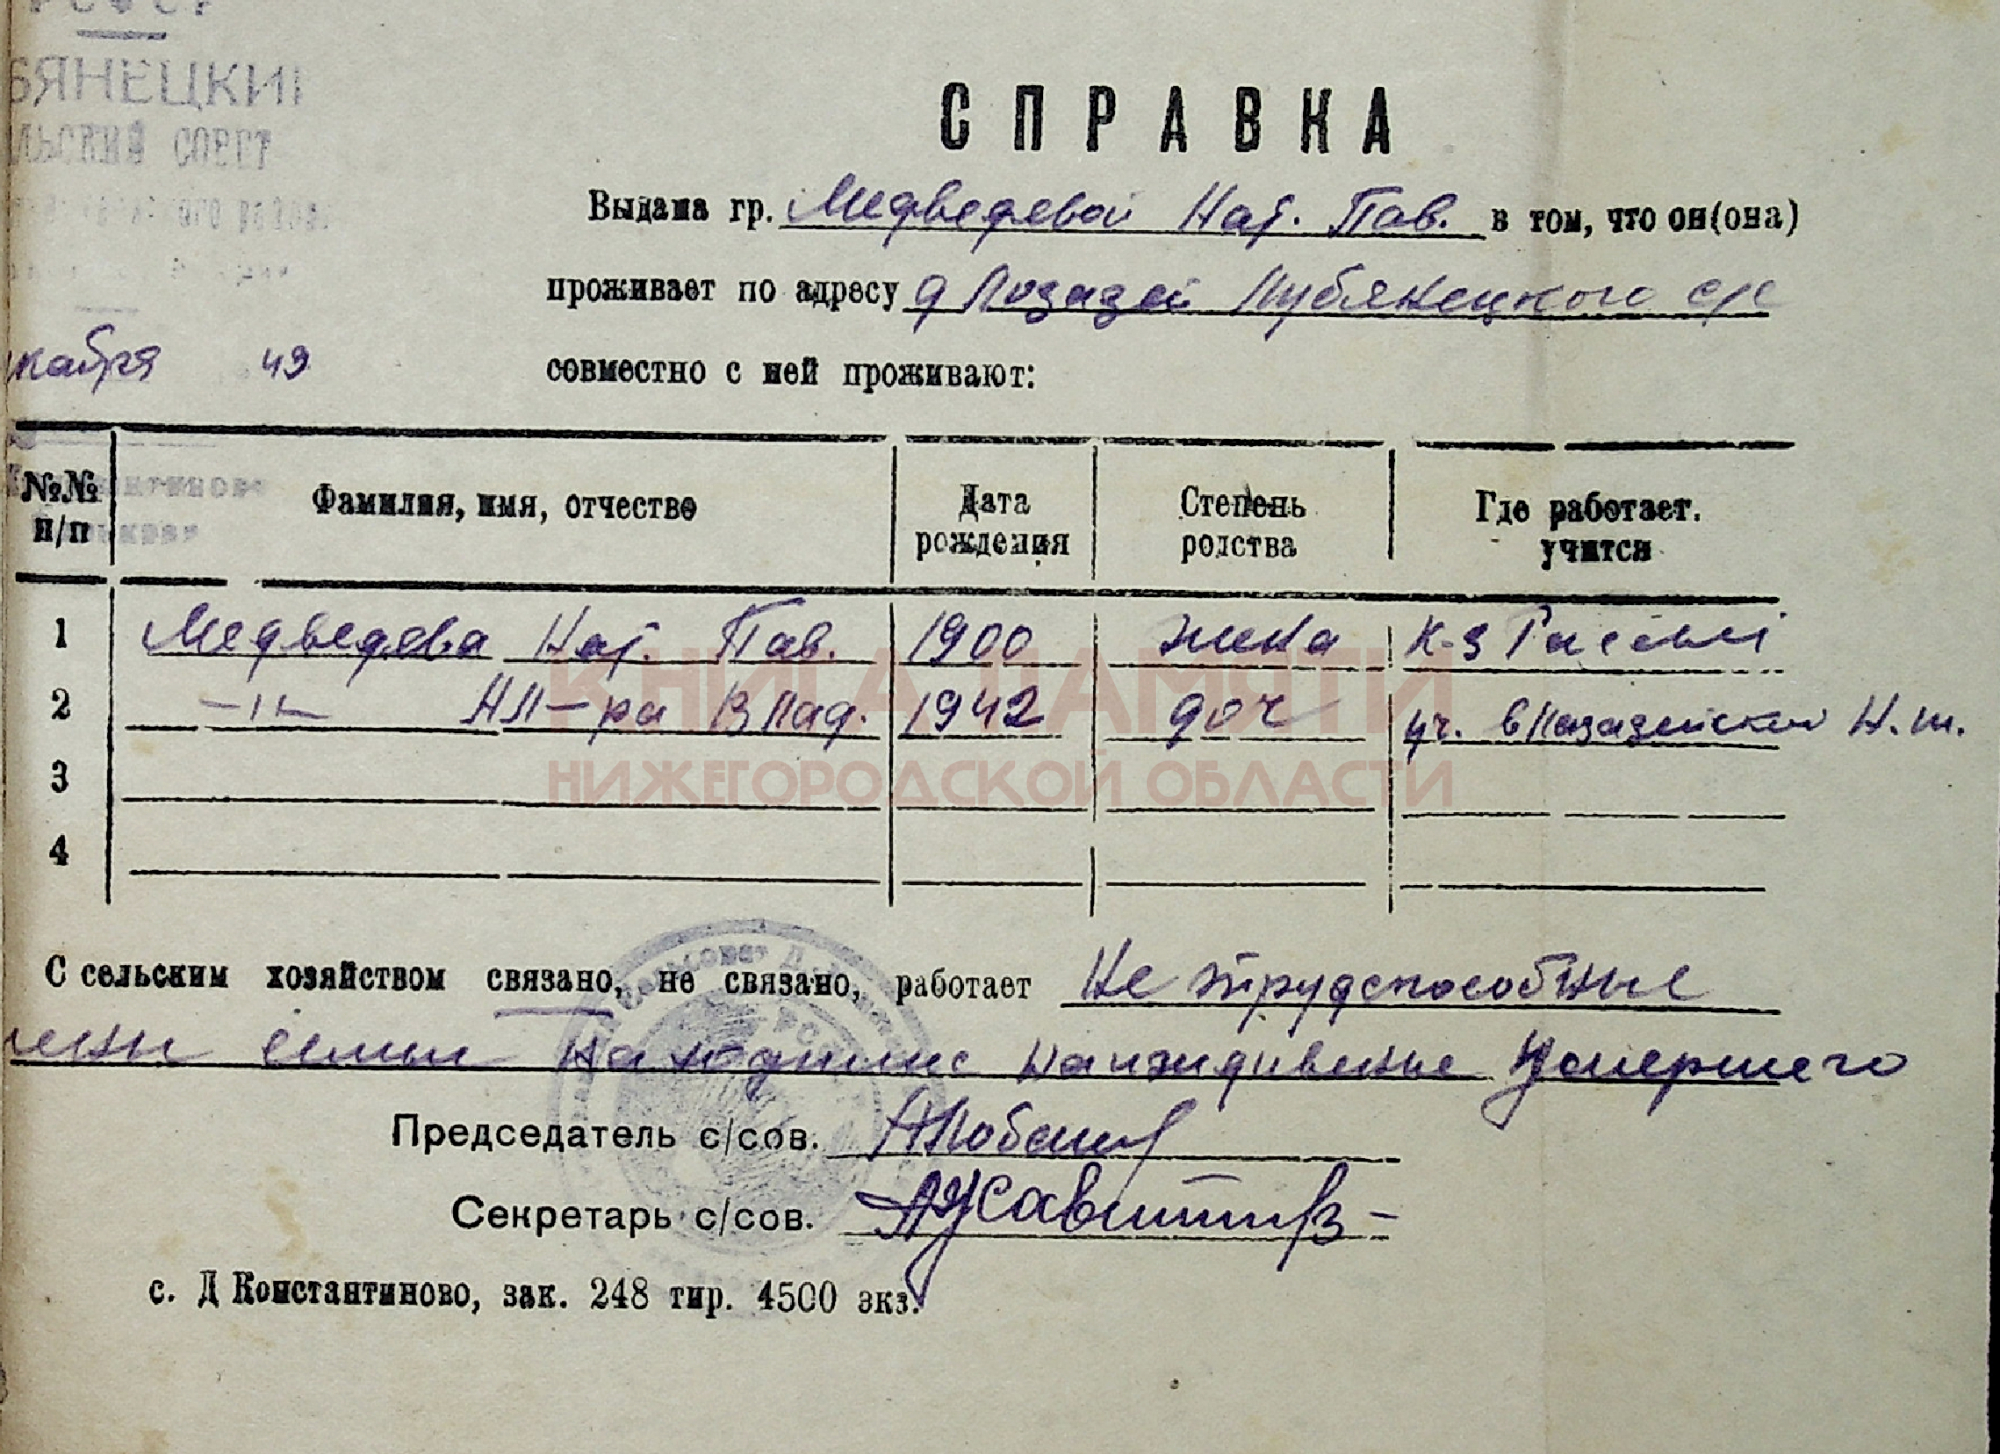 РСФСР
БЯНЕЦКИЙ
ЛЬСКИЙ СОВЕТ
кабря 49
СПРАВКА
Выдана гр. Медведевой Нат. Пав. в том, что он(она)
проживает по адресу д Лозазей Кубянецкого с/с
совместно с ней проживают:
№№ п/п Фамилия, имя, отчество Дата рождения Степень родства Где работает. учится
1 Медведева Нат. Пав. 1900 жена к-з
2 -"- Ал-ра Влад. 1942 доч уч. в Н.ш.
3
4
КНИГА ПАМЯТИ
НИЖЕГОРОДСКОЙ ОБЛАСТИ
С сельским хозяйством связано, не связано, работает Не трудспособные
лены семьи находились на иждивенье Умершего
Председатель с/сов.
Секретарь с/сов.
с. Д Константиново, зак. 248 тир. 4500 экз.